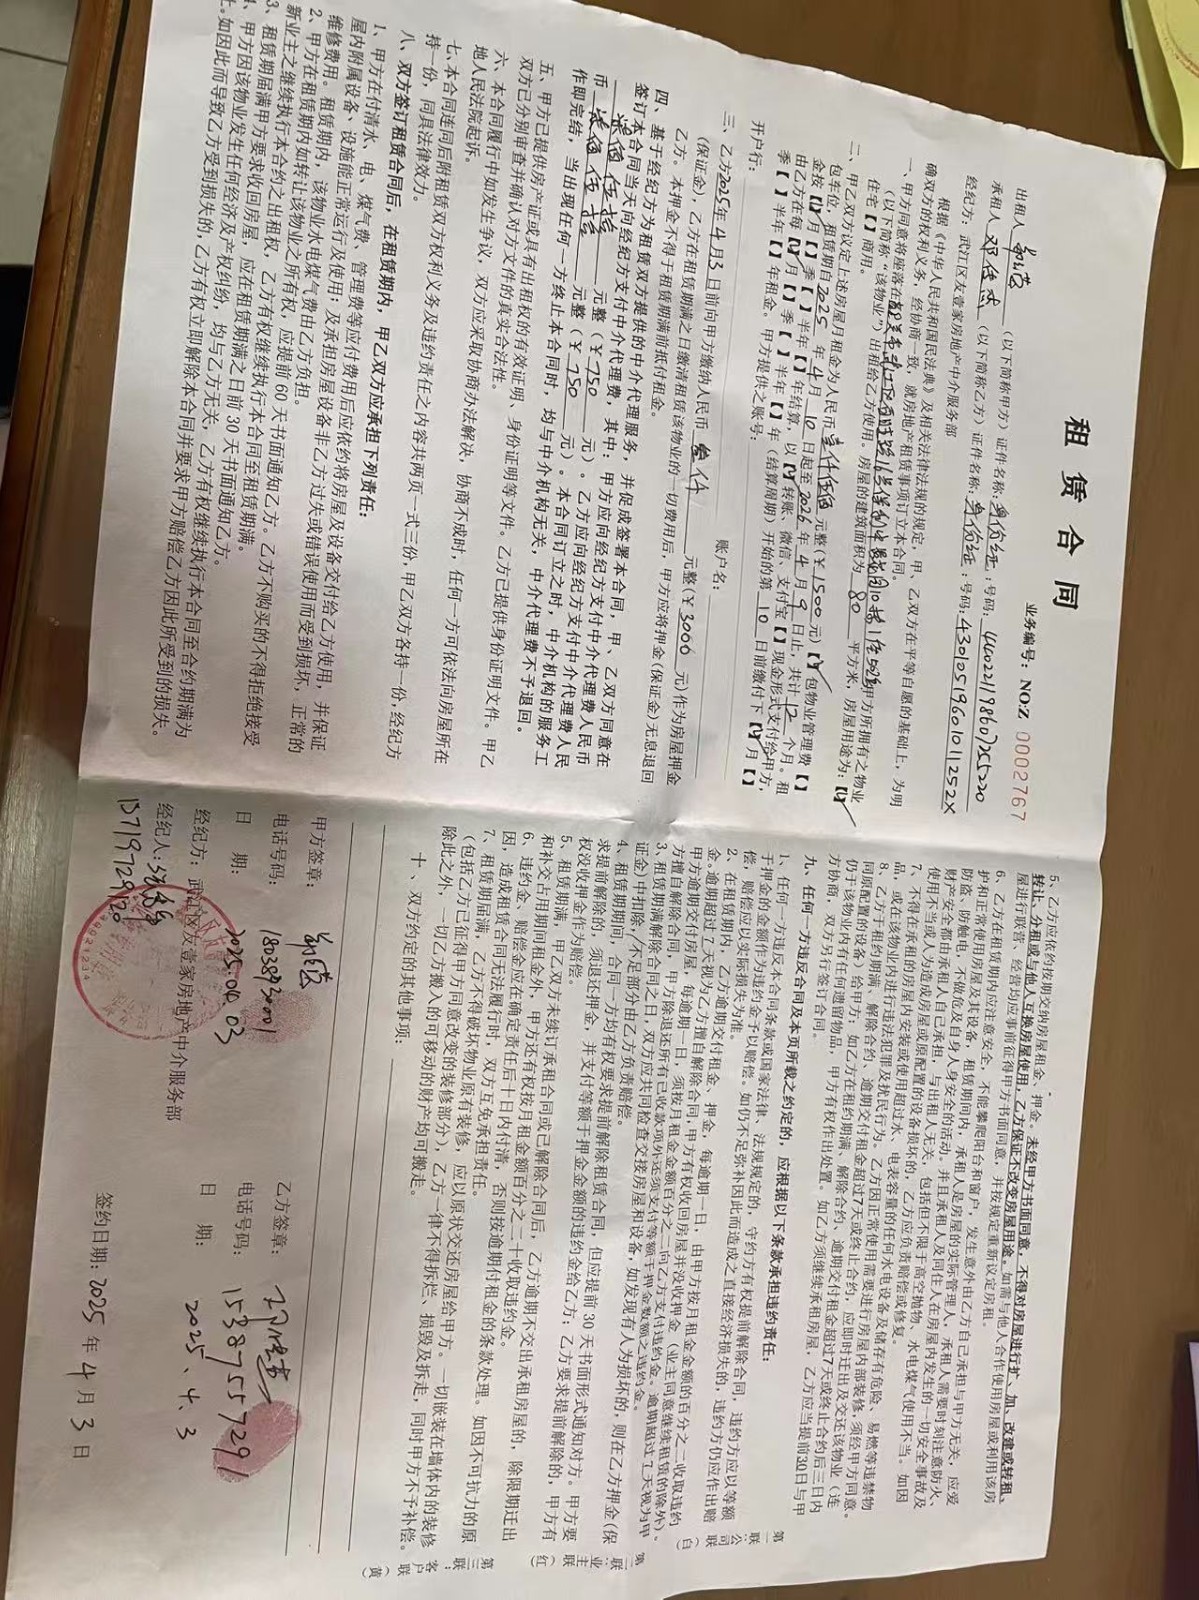 租赁合同
业务编号：NO:Z 0002767
出租人 （以下简称甲方）证件名称:身份证:号码:
承租人 （以下简称乙方）证件名称:身份证:号码:43010519601011252X
经纪方：武江区友壹家房地产中介服务部
根据《中华人民共和国民法典》及相关法律法规的规定，甲、乙双方在平等自愿的基础上，为明
确双方的权利义务，经协商一致，就房地产租赁事项订立本合同。
一、甲方同意将座落在 甲方所拥有之物业
（以下简称“该物业”）出租给乙方使用。房屋的建筑面积为 80 平方米，房屋用途为:【✓】
住宅【 】商用。
二、甲乙双方议定上述房屋月租金为人民币 壹仟伍佰 元整（￥1500元）【✓】包物业管理费【 】
包车位，租赁期自2025年4月10日起至2026年4月9日止，共计12个月。租
金按【✓】月【 】季【 】半年【 】年结算，以【✓】转账、微信、支付宝【 】现金形式支付给甲方，
由乙方在每【✓】月【 】季【 】半年【 】年（结算周期）开始的第 10 日前缴付下【✓】月【 】
季【 】半年【 】年租金。甲方提供之账号：
开户行： 账户名：
三、乙方2025年4月3日前向甲方缴纳人民币 叁仟 元整（￥3000元）作为房屋押金
(保证金)，乙方在租赁期满之日缴清租赁该物业的一切费用后，甲方应将押金(保证金)无息退回
乙方。本押金不得于租赁期满前抵付租金。
四、基于经纪方为租赁双方提供的中介代理服务，并促成签署本合同，甲、乙双方同意在
签订本合同当天向经纪方支付中介代理费，其中，甲方应向经纪方支付中介代理费人民币
柒佰伍拾 元整（￥750元）。乙方应向经纪方支付中介代理费人民
币 柒佰伍拾 元整（￥750元）。本合同订立之时，中介机构的服务工
作即完结，当出现任何一方终止本合同时，均与中介机构无关，中介代理费不予退回。
五、甲方已提供房产证或具有出租权的有效证明、身份证明等文件。乙方已提供身份证明文件。甲乙
双方已分别审查并确认对方文件的真实合法性。
六、本合同履行中如发生争议，双方应采取协商办法解决，协商不成时，任何一方可依法向房屋所在
地人民法院起诉。
七、本合同连同后附租赁双方权利义务及违约责任之内容共两页一式三份，甲乙双方各持一份，经纪方
持一份，同具法律效力。
八、双方签订租赁合同后，在租赁期内，甲乙双方应承担下列责任：
1、甲方在付清水、电、煤气费、管理费等应付费用后应依约将房屋及设备交付给乙方使用，并保证
屋内附属设备、设施能正常运行及使用；及承担房屋设备非乙方过失或错误使用而受到损坏，正常的
维修费用。租赁期内，该物业水电煤气费由乙方负担。
2、甲方在租赁期内如转让该物业之所有权，应提前60天书面通知乙方。乙方不购买的不得拒绝接受
新业主之继续执行本合约之出租权，乙方有权继续执行本合同至租赁期满。
3、租赁期届满甲方要求收回房屋，应在租赁期满之日前30天书面通知乙方。
4、甲方因该物业发生任何经济及产权纠纷，均与乙方无关，乙方有权继续执行本合同至合约期满为
止。如因此而导致乙方受到损失的，乙方有权立即解除本合同并要求甲方赔偿乙方因此所受到的损失。
5、乙方应依约按期交纳房屋租金、押金。未经甲方书面同意，不得对房屋进行扩、加、改建或转租、
转让、分租或与他人互换房屋使用，乙方保证不改变房屋用途。如需与他人合作使用房屋或利用该房
屋进行联营、经营均应事前征得甲方书面同意，并按规定重新议定房租。
6、乙方在租赁期内应注意安全，不能攀爬阳台和窗户，发生意外由乙方自己承担与甲方无关，应爱
护和正常使用房屋及其设备，租赁期间内，承租人是房屋的实际管理人，承租人需要时刻注意防火、
防盗、防触电，不做危及自身人身安全的活动，并且承租人及同住人在房屋内发生的一切安全事故及
财产安全都由承租人自己承担，与出租人无关，包括但不限于高空抛物、水电煤气使用不当。如因
使用不当或人为造成房屋或原配置的设备损坏的，乙方应负责赔偿或修复。
7、不得在承租的房屋内安装或使用超过水、电表容量的任何水电设备及储存有危险、易燃等违禁物
品，或在该物业内进行违法犯罪及扰民行为。乙方因正常使用需要进行房屋内部装修，须经甲方同意。
8、乙方于租约期满、解除合约、逾期交付租金超过7天或终止合约，应即时迁出及交还该物业（连
同原配置的设备）给甲方；如乙方在租约期满、解除合约、逾期交付租金超过7天或终止合约后三日内
仍于该物业内有任何遗留物品，甲方有权作出处置。如乙方须继续承租房屋，乙方应当提前30日与甲
方协商，双方另行签订合同。
九、任何一方违反合同及本页所载之约定的，应根据以下条款承担违约责任：
1、任何一方违反本合同条款或国家法律、法规规定的，守约方有权提前解除合同，违约方应以等额
于押金的金额作为违约金予以赔偿。如仍不足弥补因此而造成之直接经济损失的，违约方仍应作出赔
偿，赔偿应以实际损失为准。
2、在租赁期内，乙方逾期交付租金、押金，每逾期一日，由甲方按月租金金额的百分之二收取违约
金。逾期超过7天视为乙方擅自解除合同，甲方有权收回房屋并没收押金（业主同意继续租赁的除外）。
甲方逾期交付房屋，每逾期一日，须按月租金金额百分之二向乙方支付违约金。逾期超过7天视为甲
方擅自解除合同，甲方除退还所有已收款项外还须支付等额于押金数额之违约金。
3、租赁期满解除合同之日，双方应共同检查交接房屋和设备，如发现有人为损坏的，则在乙方押金(保
证金)中扣除，不足部分由乙方负责赔偿。
4、租赁期期间，合同一方均有权要求提前解除租赁合同，但应提前30天书面形式通知对方。甲方要
求提前解除的，须退还押金，并支付等额于押金金额的违约金给乙方；乙方要求提前解除的，甲方有
权没收押金作为赔偿。
5、租赁期满，甲乙双方未续订承租合同或已解除合同后，乙方逾期不交出承租房屋的，除限期迁出
和补交占用期间租金外，甲方还有权按月租金额百分之二十收取违约金。
6、违约金、赔偿金应在确定责任后十日内付清，否则按逾期付租金的条款处理。如因不可抗力的原
因，造成租赁合同无法履行时，双方互免承担责任。
7、租赁期届满，乙方不得破坏物业原有装修，应以原状交还房屋给甲方。一切嵌装在墙体内的装修
（包括乙方已征得甲方同意改变的装修部分），乙方一律不得拆烂、损毁及拆走，同时甲方不予补偿。
除此之外，一切乙方搬入的可移动的财产均可搬走。
十、双方约定的其他事项：
甲方签章： 乙方签章：
电话号码：18038930001 电话号码：15387557291
日 期：2025.04.03 日 期：2025.4.3
经纪方：武江区友壹家房地产中介服务部
经纪人：
13719729120 签约日期：2025年4月3日
第一联：公司联（白）
第二联：业主联（红）
第三联：客户联（黄）